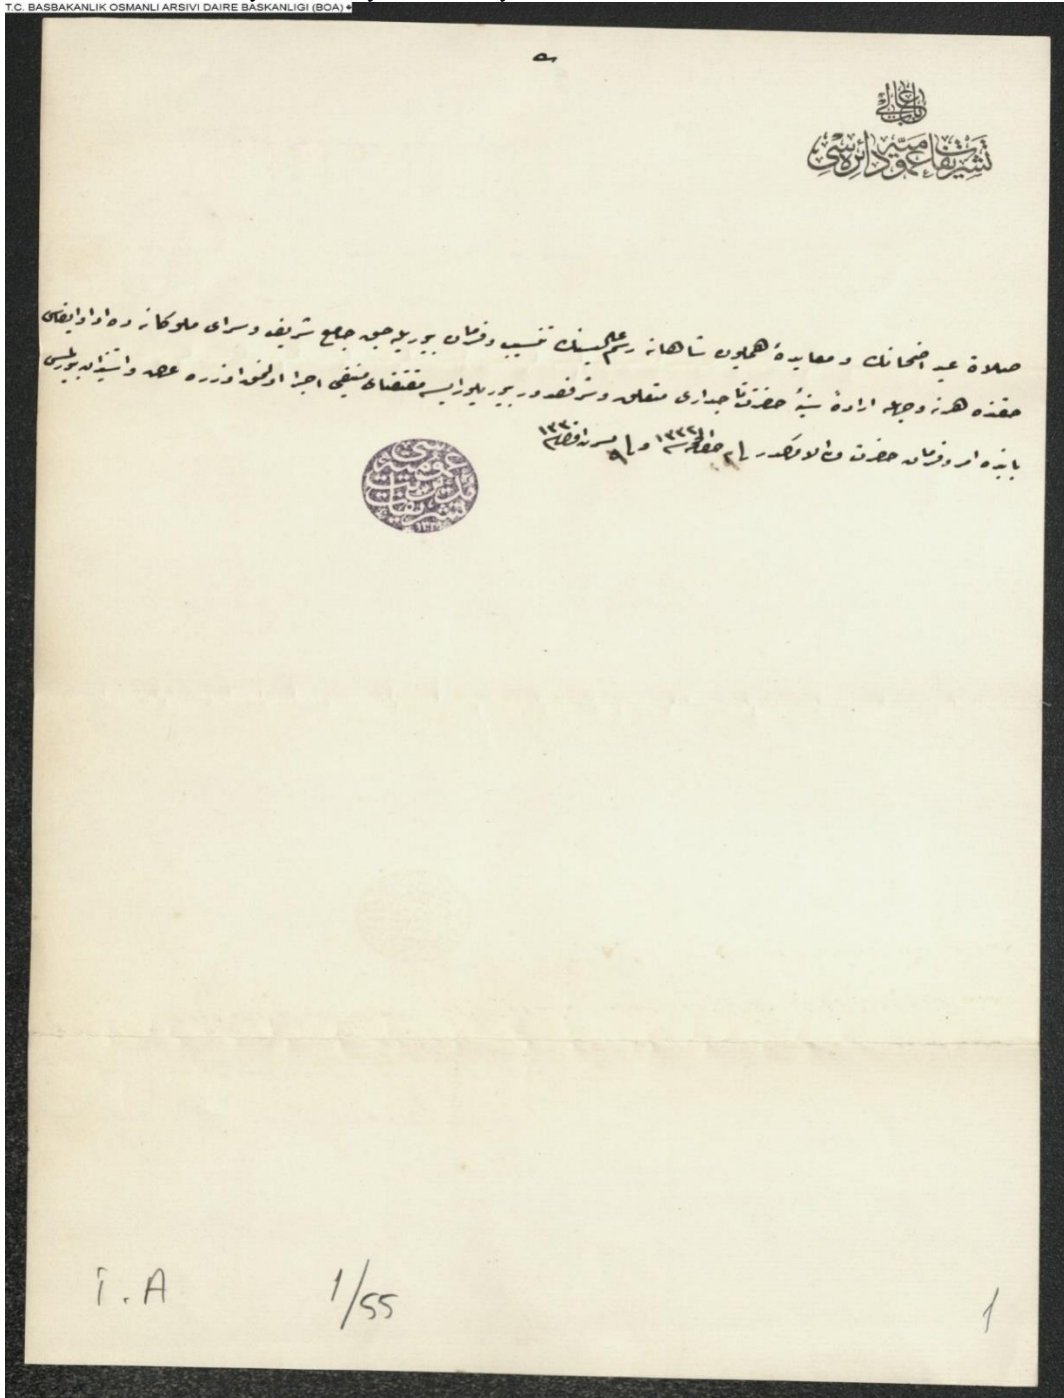 T.C. BASBAKANLIK OSMANLI ARSIVI DAIRE BASKANLIGI (BOA)
باب عالی
تشریفات عمومیه دائره سی
صلاة عید اضحانك و معایدۀ همایون شاهانه رسم عالیسنك تنسیب و فرمان بیوریله جق جامع شریف و سرای ملوکانه ده ادا و ایفاسی
حقنده هر نه وجهله ارادۀ سنیۀ حضرت تاجداری متعلق و شرفصدور بیوریلور ایسه مقتضای منیفی اجرا اولنمق اوزره عرض و استیذان بیورلمسی
بابنده امر و فرمان حضرت من له الامرکدر فی ١٣٣٢ و فی ١٣٣٠
İ.A
1/55
1